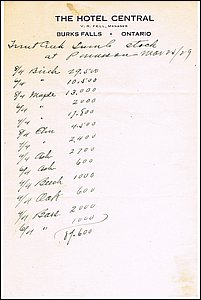 THE HOTEL CENTRAL
V. R. FELL, MANAGER
BURKS FALLS - ONTARIO
Trout Creek Lumb Stock
at Mar 26/29
8/4 Birch 29.500
4/4 " 10.500
8/4 Maple 13.000
4/4 " 2000
" 17.800
8/4 Elm 4.500
4/4 " 2.400
4/4 Ash 2700
6/4 Ash 600
4/4 Beech 1000
4/4 Oak 600
4/4 Bass 2000
6/4 " 1000
87.600